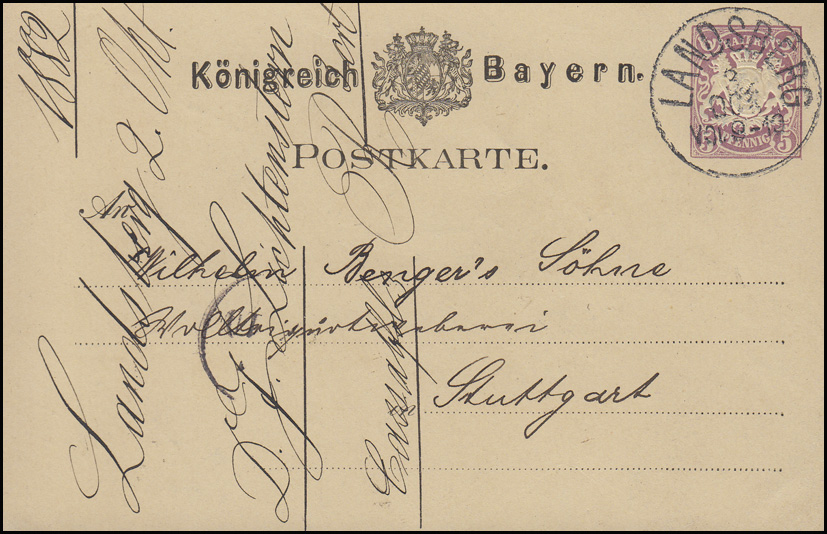 Königreich Bayern.
POSTKARTE.
An
Wilhelm Benger's Söhne
Stuttgart
LANDSBERG
VOR. 9-10
PFENNIG
5 5
1882
Landsberg 2. Okt.
D. J. Lichtenstern